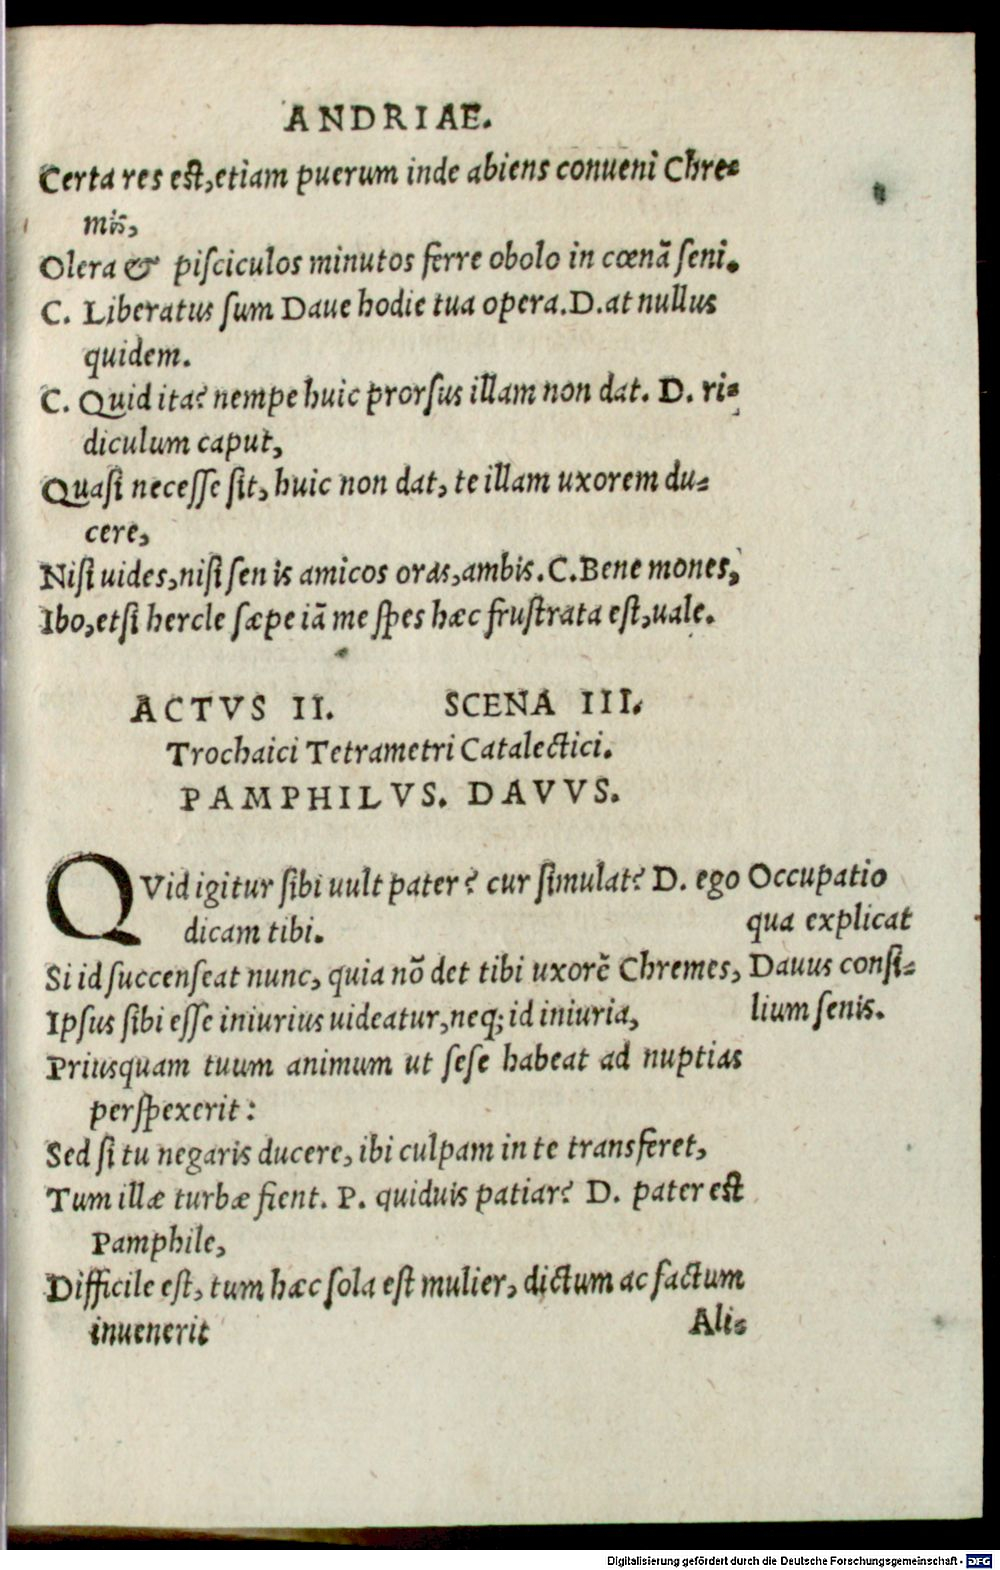 ANDRIAE.
Certa res est, etiam puerum inde abiens conueni Chre=
mis,
Olera & pisciculos minutos ferre obolo in cœnā seni.
C. Liberatus sum Daue hodie tua opera. D. at nullus
quidem.
C. Quid ita? nempe huic prorsus illam non dat. D. ri=
diculum caput,
Quasi necesse sit, huic non dat, te illam uxorem du=
cere,
Nisi uides, nisi senis amicos oras, ambis. C. Bene mones,
Ibo, etsi hercle sæpe iā me spes hæc frustrata est, uale.
ACTVS II. SCENA III.
Trochaici Tetrametri Catalectici.
PAMPHILVS. DAVVS.
QVid igitur sibi uult pater? cur simulat? D. ego
dicam tibi.
Si id succenseat nunc, quia nō det tibi uxorē Chremes,
Ipsus sibi esse iniurius uideatur, neq; id iniuria,
Priusquam tuum animum ut sese habeat ad nuptias
perspexerit:
Sed si tu negaris ducere, ibi culpam in te transferet,
Tum illæ turbæ fient. P. quiduis patiar? D. pater est
Pamphile,
Difficile est, tum hæc sola est mulier, dictum ac factum
inuenerit
Ali=
Occupatio
qua explicat
Dauus consi=
lium senis.
Digitalisierung gefördert durch die Deutsche Forschungsgemeinschaft - DFG